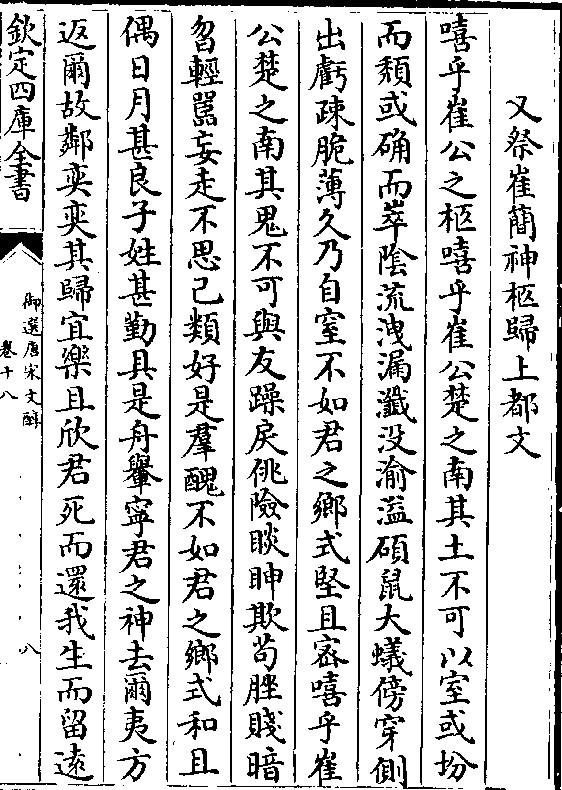 又祭崔蕳神柩歸上都文
嘻乎崔公之柩嘻乎崔公楚之南其土不可以室或坋
而頽或确而崒陰流洩漏瀸没渝溢碩鼠大蟻傍穿側
出虧疎脆薄久乃自窒不如君之鄉式堅且宻嘻乎崔
公楚之南其鬼不可與友躁戾佻險睒䀼欺苟脞賤暗
曶輕嚚妄走不思己類好是羣醜不如君之鄉式和且
偶日月甚良子姓甚勤具是舟轝寧君之神去爾夷方
返爾故鄰奕奕其歸宜樂且欣君死而還我生而留遠
欽定四庫全書
御選唐宋文醇
卷十八
八